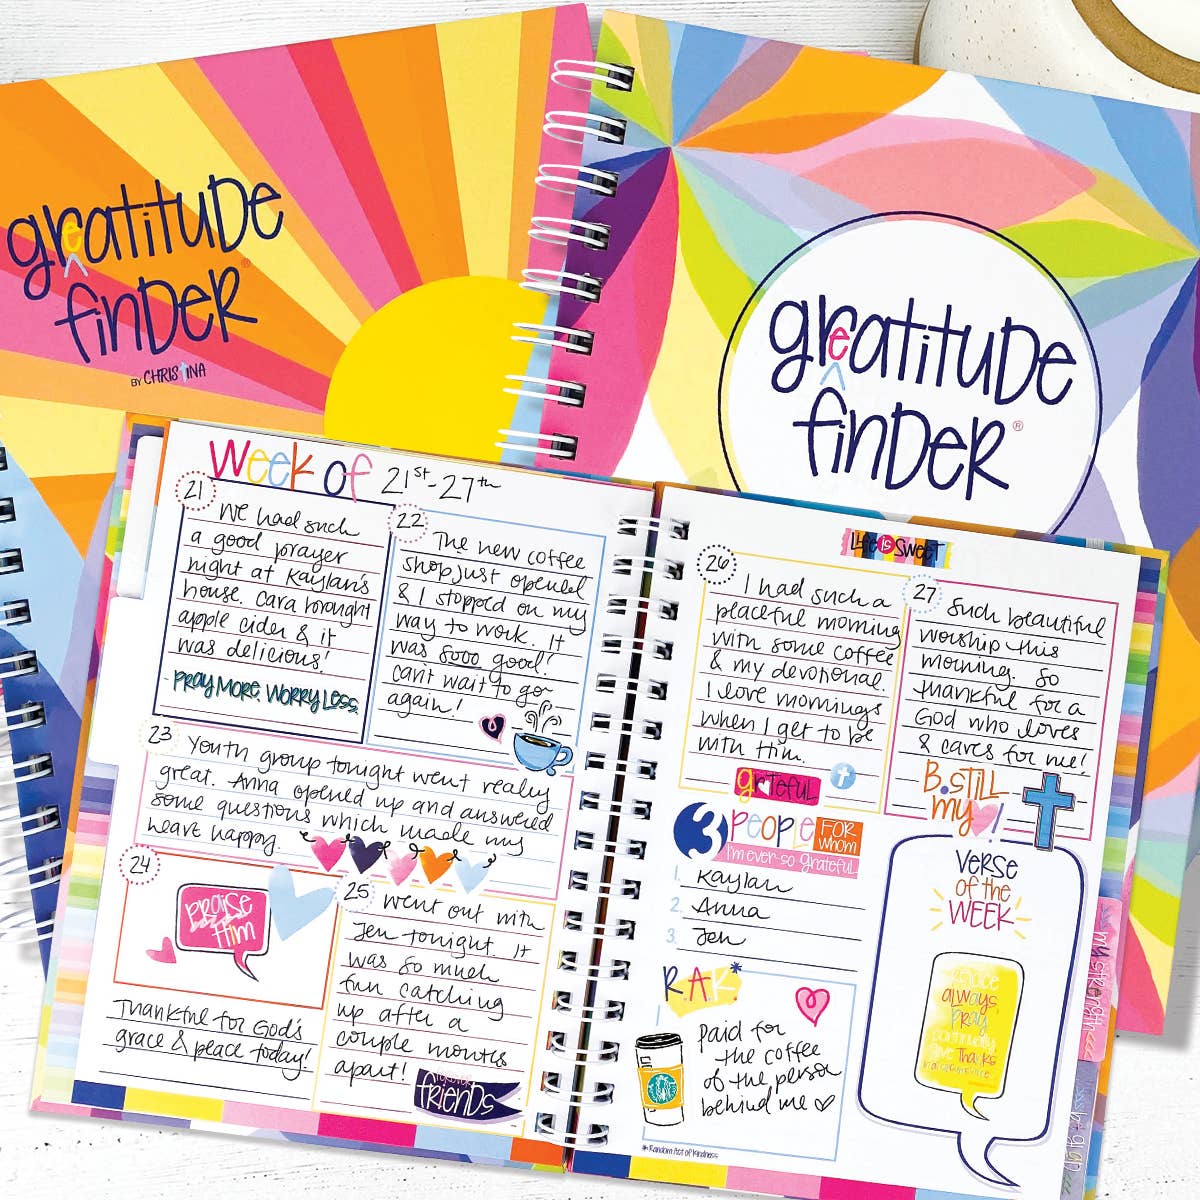 greatitude
finder®
BY CHRISTINA
greatitude
finder®
Week of 21st-27th
21
We had such
a good prayer
night at Kaylan's
house. Cara brought
apple cider & it
was delicious!
PRAY MORE. WORRY LESS.
22
The new coffee
shop just opened
& I stopped on my
way to work. It
was sooo good!
can't wait to go
again!
23
Youth group tonight went really
great. Anna opened up and answered
some questions which made my
heart happy.
24
PRAISE
Him
Thankful for God's
grace & peace today!
25
Went out with
Jen tonight. It
was so much
fun catching
up after a
couple months
apart!
FRIENDS
Life is SWEET
26
I had such a
peaceful morning
with some coffee
& my devotional.
I love mornings
when I get to be
with Him.
grateful
27
Such beautiful
worship this
morning. So
thankful for a
God who loves
& cares for me!
B.STILL
my !
3 PEOPLE FOR WHOM
I'm ever-so grateful
1. Kaylan
2. Anna
3. Jen
R.A.K.*
Paid for
the coffee
of the person
behind me ♡
*Random Act of Kindness
VERSE
OF the
WEEK
always,
PRAY
continually
give THANKS
my strength